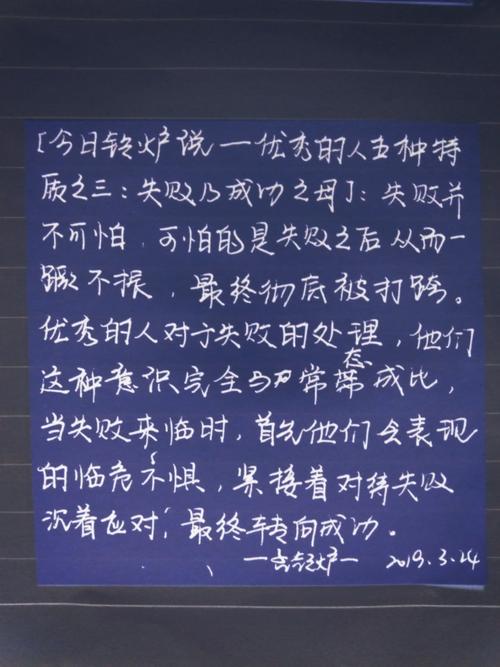 [今日铃炉说一优秀的人五种特
质之三:失败乃成功之母]:失败并
不可怕,可怕的是失败之后从而一
蹶不振,最终彻底被打跨。
优秀的人对于失败的处理,他们
这种意识完全 常态 成比,
当失败来临时,首先他们会表现
的临危不惧,紧接着对待失败
沉着应对,最终转向成功。
2019.3.24